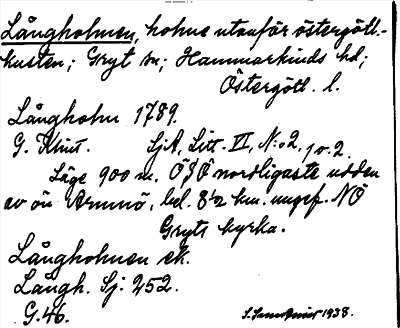 Långholmen, holme utanför östergötl.-
kusten; Gryt sn; Hammarkinds hd;
Östergötl. l.
Långholm 1789.
G. Klint. SjA, Litt. VI, N:o 2, 1 o. 2.
Läge 900 m. ÖSÖ nordligaste udden
av ön Armnö, bel. 8½ km. ungef. NÖ
Gryts kyrka.
Långholmen ek.
Långh. Sj. 252.
G.46. 1938.